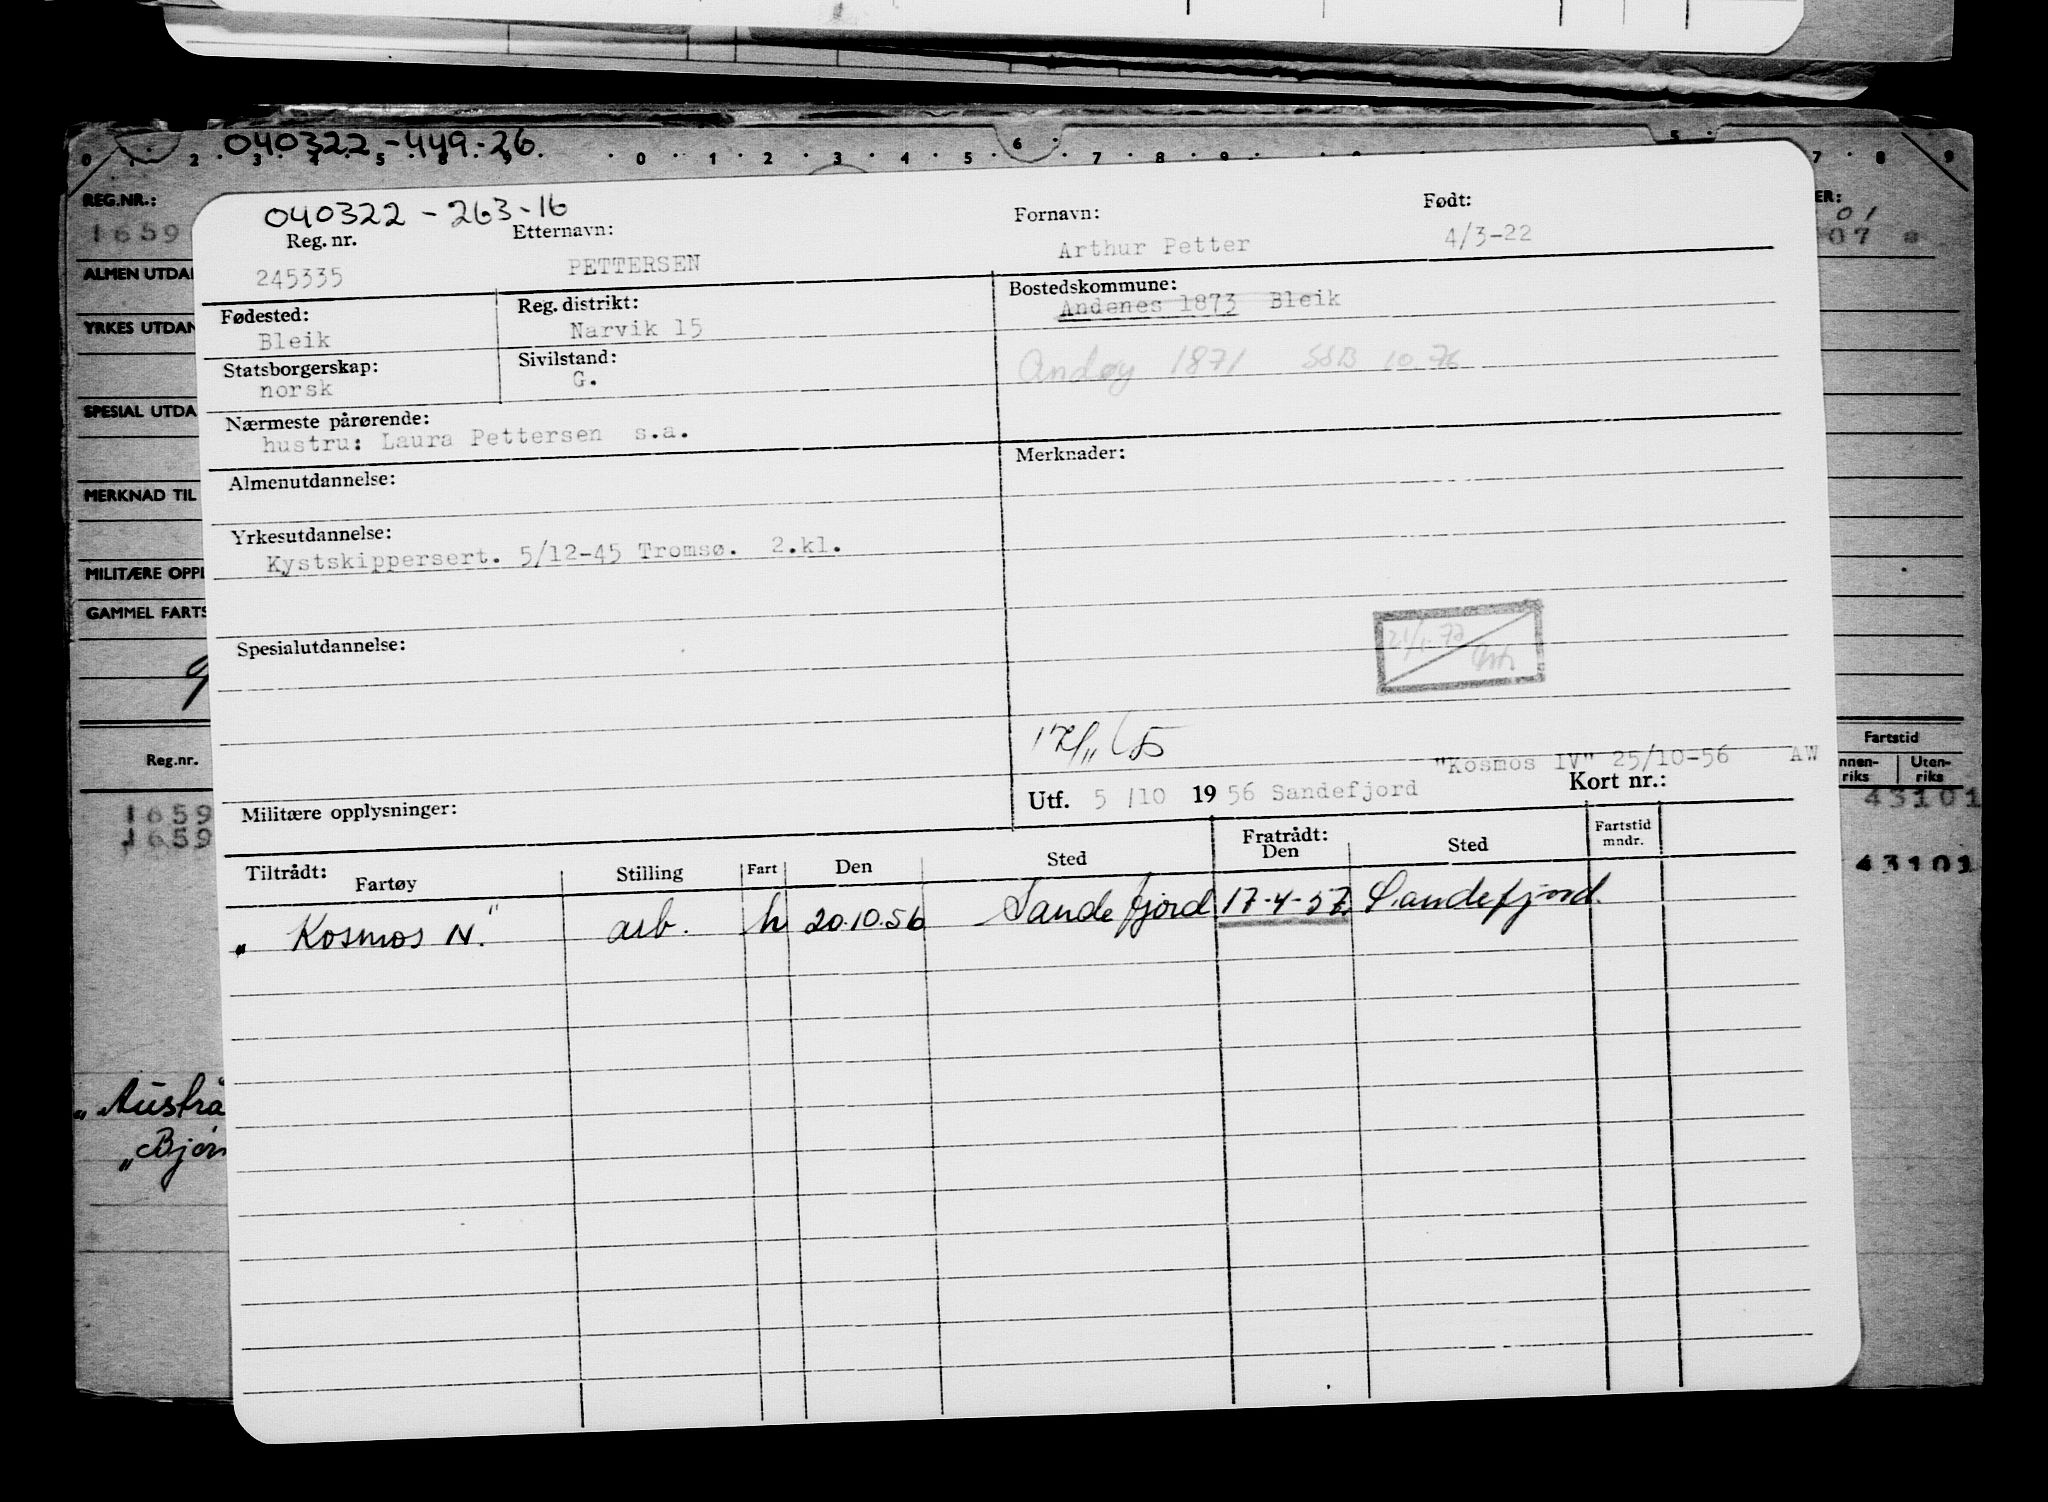 040322-449-26
0 1 2 3 4 5 8 9 0 1 2 3 4 5 6 7 8 9 5 7 8 9
REG.NR.:
1659
ALMEN UTDA
YRKES UTDAN
SPESIAL UTDA
MERKNAD TIL
MILITÆRE OPPL
GAMMEL FARTS
Reg.nr.
1659
1659
„Austrå
„Bjør
ER:
01
07
Fartstid
nnen-
riks
Uten-
riks
43101
43101
040322-263-16
Reg. nr. Etternavn: Fornavn: Født:
245335 PETTERSEN Arthur Petter 4/3-22
Fødested: Reg. distrikt: Bostedskommune:
Bleik Narvik 15 Andenes 1873 Bleik
Statsborgerskap: Sivilstand:
norsk G. Andøy 1871 SSB 10.76
Nærmeste pårørende:
hustru: Laura Pettersen s.a.
Almenutdannelse: Merknader:
Yrkesutdannelse:
Kystskippersert. 5/12-45 Tromsø. 2.kl.
Spesialutdannelse:
"Kosmos IV" 25/10-56 AW
Militære opplysninger: Utf. 5 /10 19 56 Sandefjord Kort nr.:
Tiltrådt: Fratrådt:
Fartøy Stilling Fart Den Sted Den Sted Fartstid mndr.
„ Kosmos IV." arb. h 20.10.56 Sandefjord 17-4-57. Sandefjord.